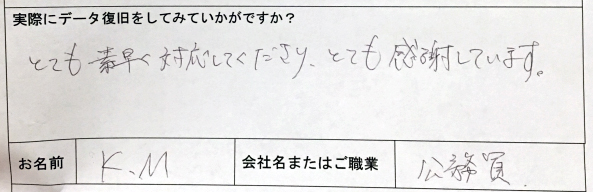 実際にデータ復旧をしてみていかがですか？
とても素早く対応してくださり、とても感謝しています。
お名前 K.M 会社名またはご職業 公務員